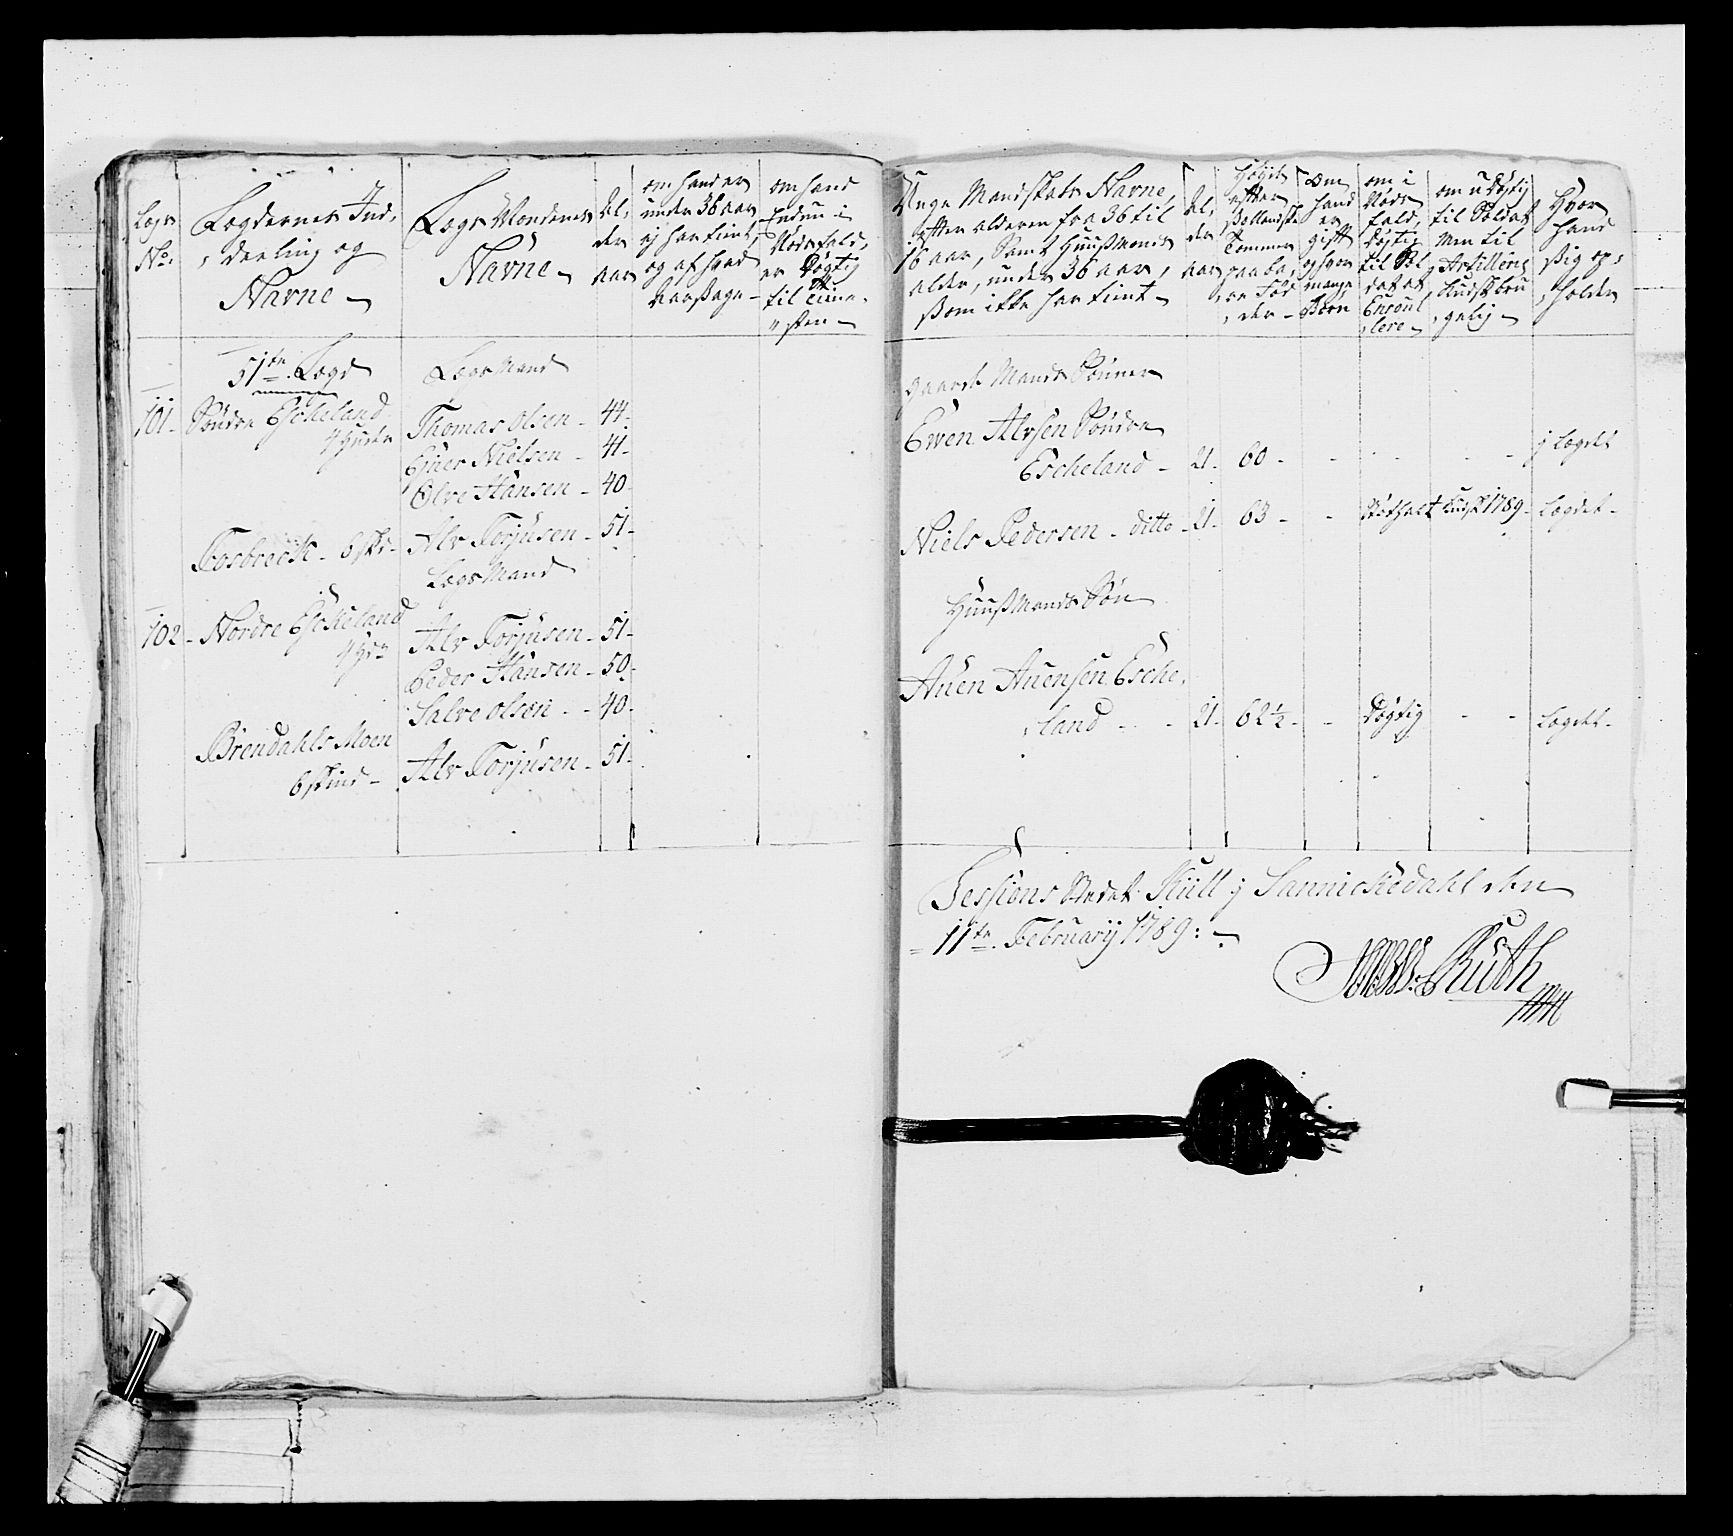 Legs No:
Legdernes Ind-
deeling og
Navne
Legs Mændenes
Navne
Al-
der
aar
om hand er
under 36 aar
ej har tient,
og af hvad
Aarsage
om hand
Endnu i
Nøds fald,
er Døgtig
til Tiene-
sten
51te Legd
Legs Mand
101 Søndre Escheland
4 huder
Thomas Olsen 44
Ejner Nielsen 41
Elve Hansen 40
Fosbreck 6 sk:
Alv Torjusen 51
Legs Mand
102 Nordre Escheland
4 hdr
Alv Torjusen 51
Peder Hansen 50
Salve Olsen 40
Brendahls Moen
6 skind
Alv Torjusen 51
Unge Mandskabs Navne,
efter alderen fra 36 til
16 aar, Samt Huusmænds
alder, under 36 aar,
som ikke har tient
Al-
der
aar
Høyde
efter
Hollandske
Tommer
paa ba-
re Fød-
der
Om
hand
er
gift
og hvor
mange
Børn
om i
Nøds
fald,
Døgtig
til Sol-
dat at
Enroul-
lere
om uDøgtig
til Soldat
men til
Artillerie
kudsk bru-
gelig
Hvor
hand
sig op-
holder
gaard Mands Sønner
Ewen Alvsen Søndre
Escheland 21 60 j Legdet
Niels Pedersen ditto 21 63 kudsk 1789 Legdet
Huusmands Søn
Auen Auensen Esche-
land 21 62 1/2 Døgtig Legdet
Sessions Stedet Kiill j Sannickedahl den
11te February 1789:
Ruth